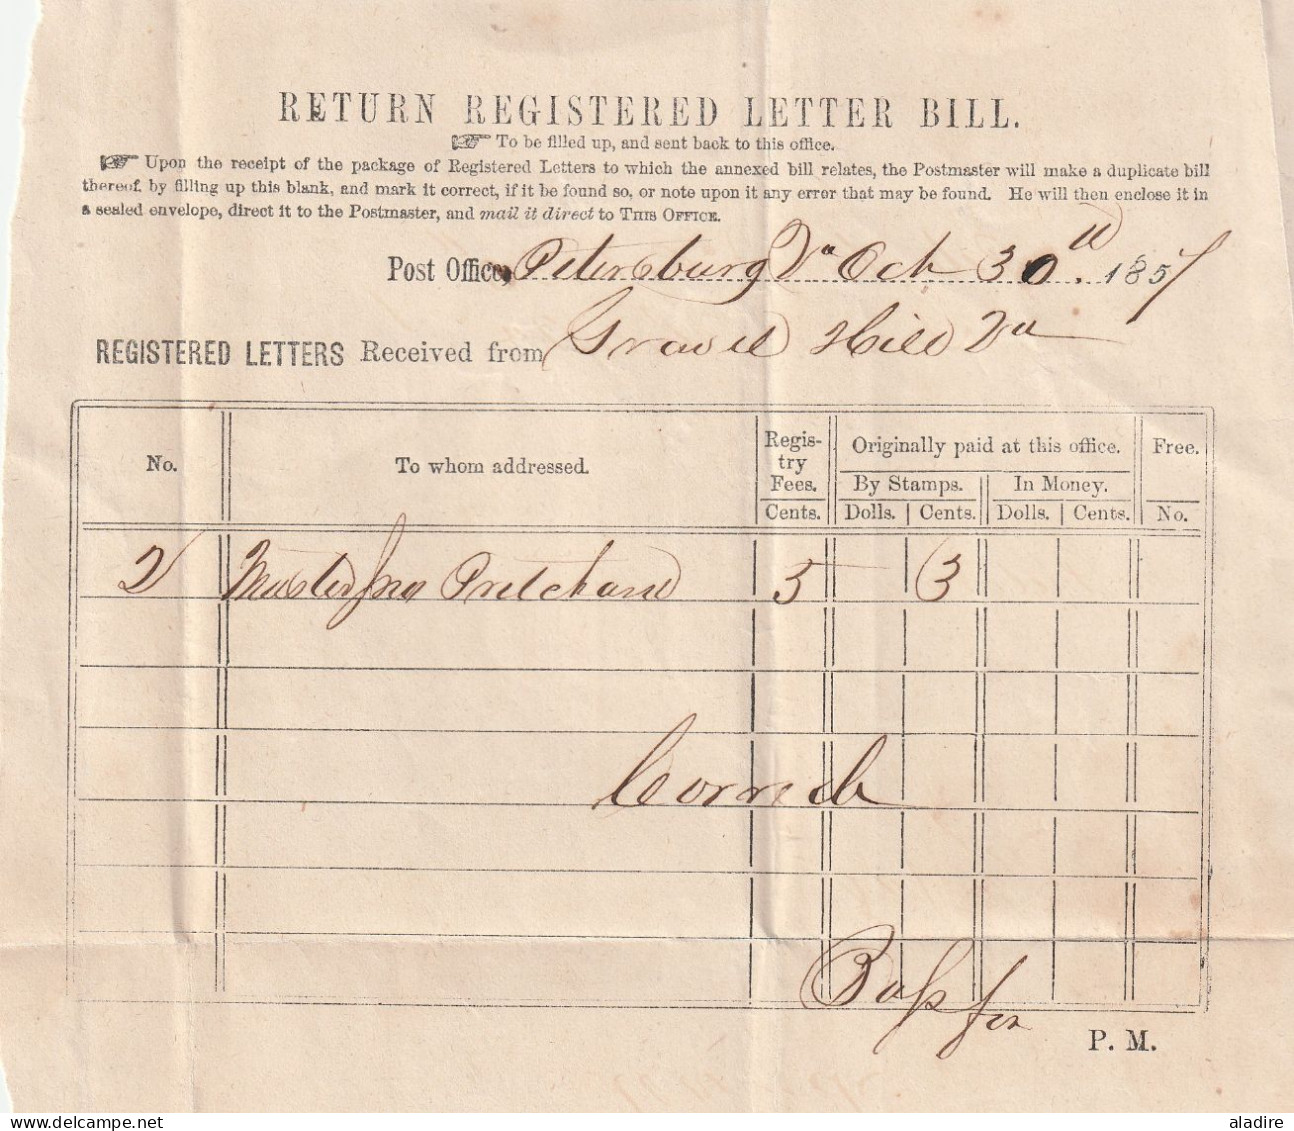 RETURN REGISTERED LETTER BILL.
☞ To be filled up, and sent back to this office.
☞ Upon the receipt of the package of Registered Letters to which the annexed bill relates, the Postmaster will make a duplicate bill
thereof, by filling up this blank, and mark it correct, if it be found so, or note upon it any error that may be found. He will then enclose it in
a sealed envelope, direct it to the Postmaster, and mail it direct to THIS OFFICE.
Post Office, Petersburg Va Oct 30th. 1857
REGISTERED LETTERS Received from Gravel Hill Va
No.
To whom addressed.
Regis-
try
Fees.
Cents.
Originally paid at this office.
By Stamps.
In Money.
Dolls.
Cents.
Dolls.
Cents.
Free.
No.
2 Master Jno Pritchard 5 3
Correct
Bass for
P. M.
aladire